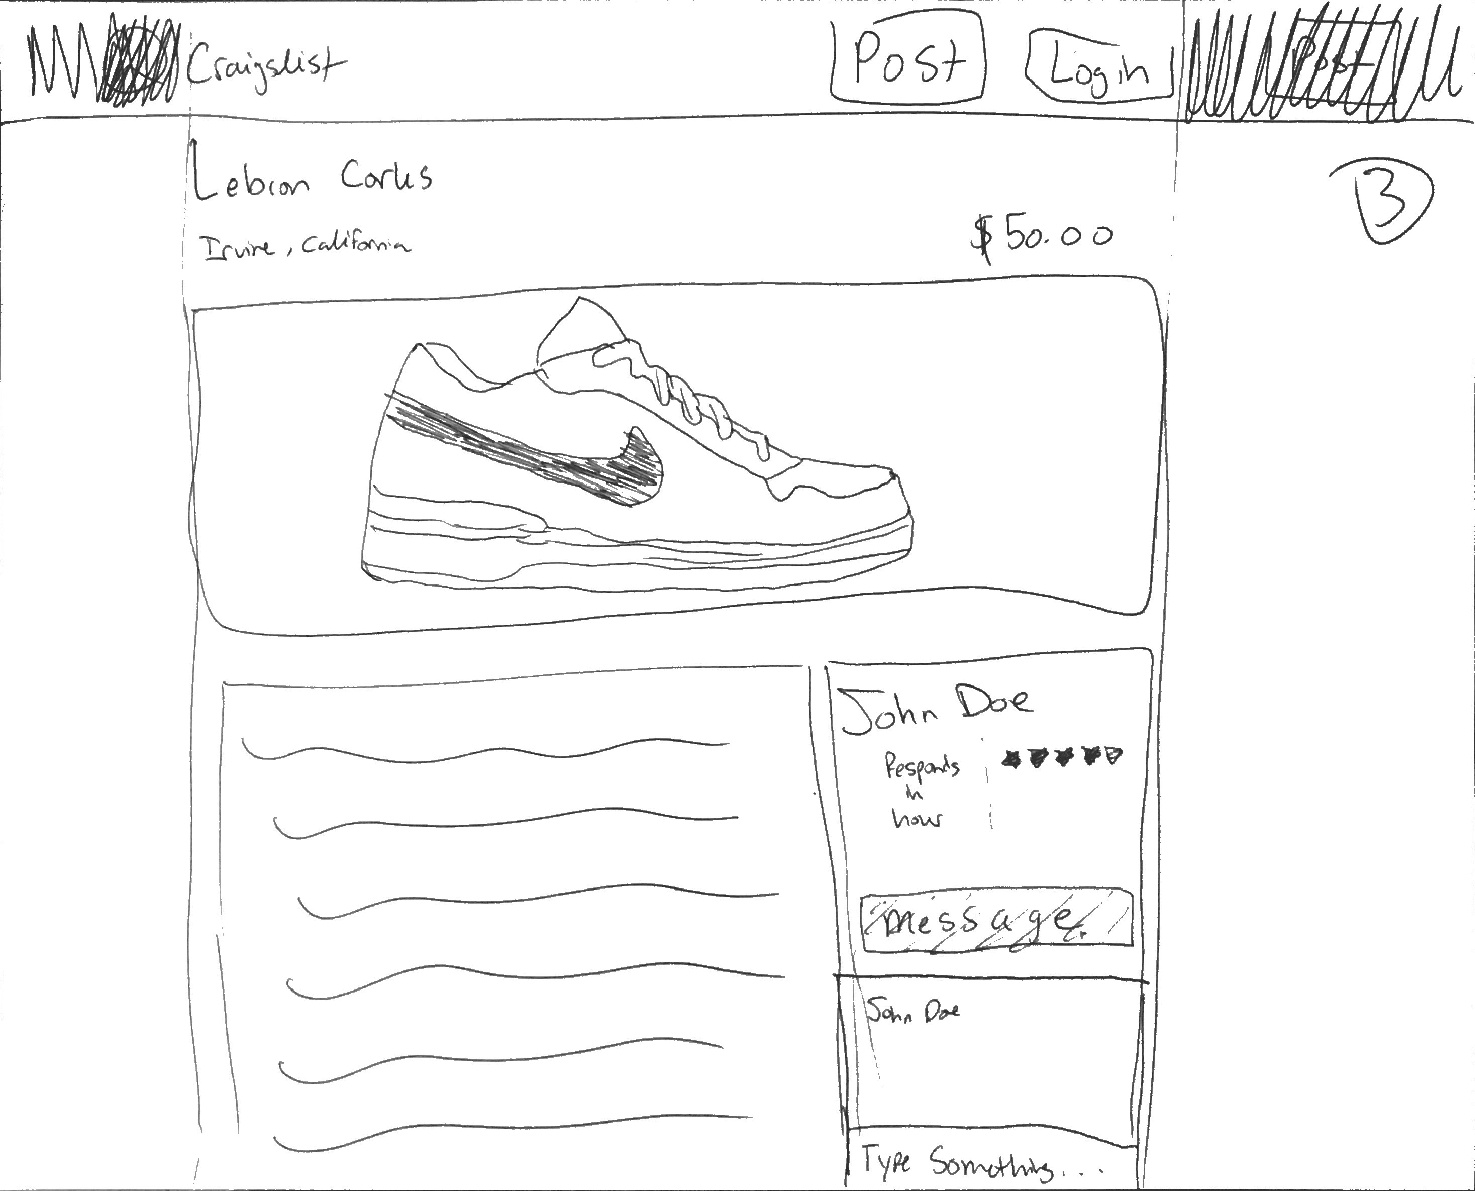 Craigslist
Post
Login
Post
Lebron
Irvine, California
$50.00
3
John Doe
Responds
in
hour
message
John Doe
Type Something...